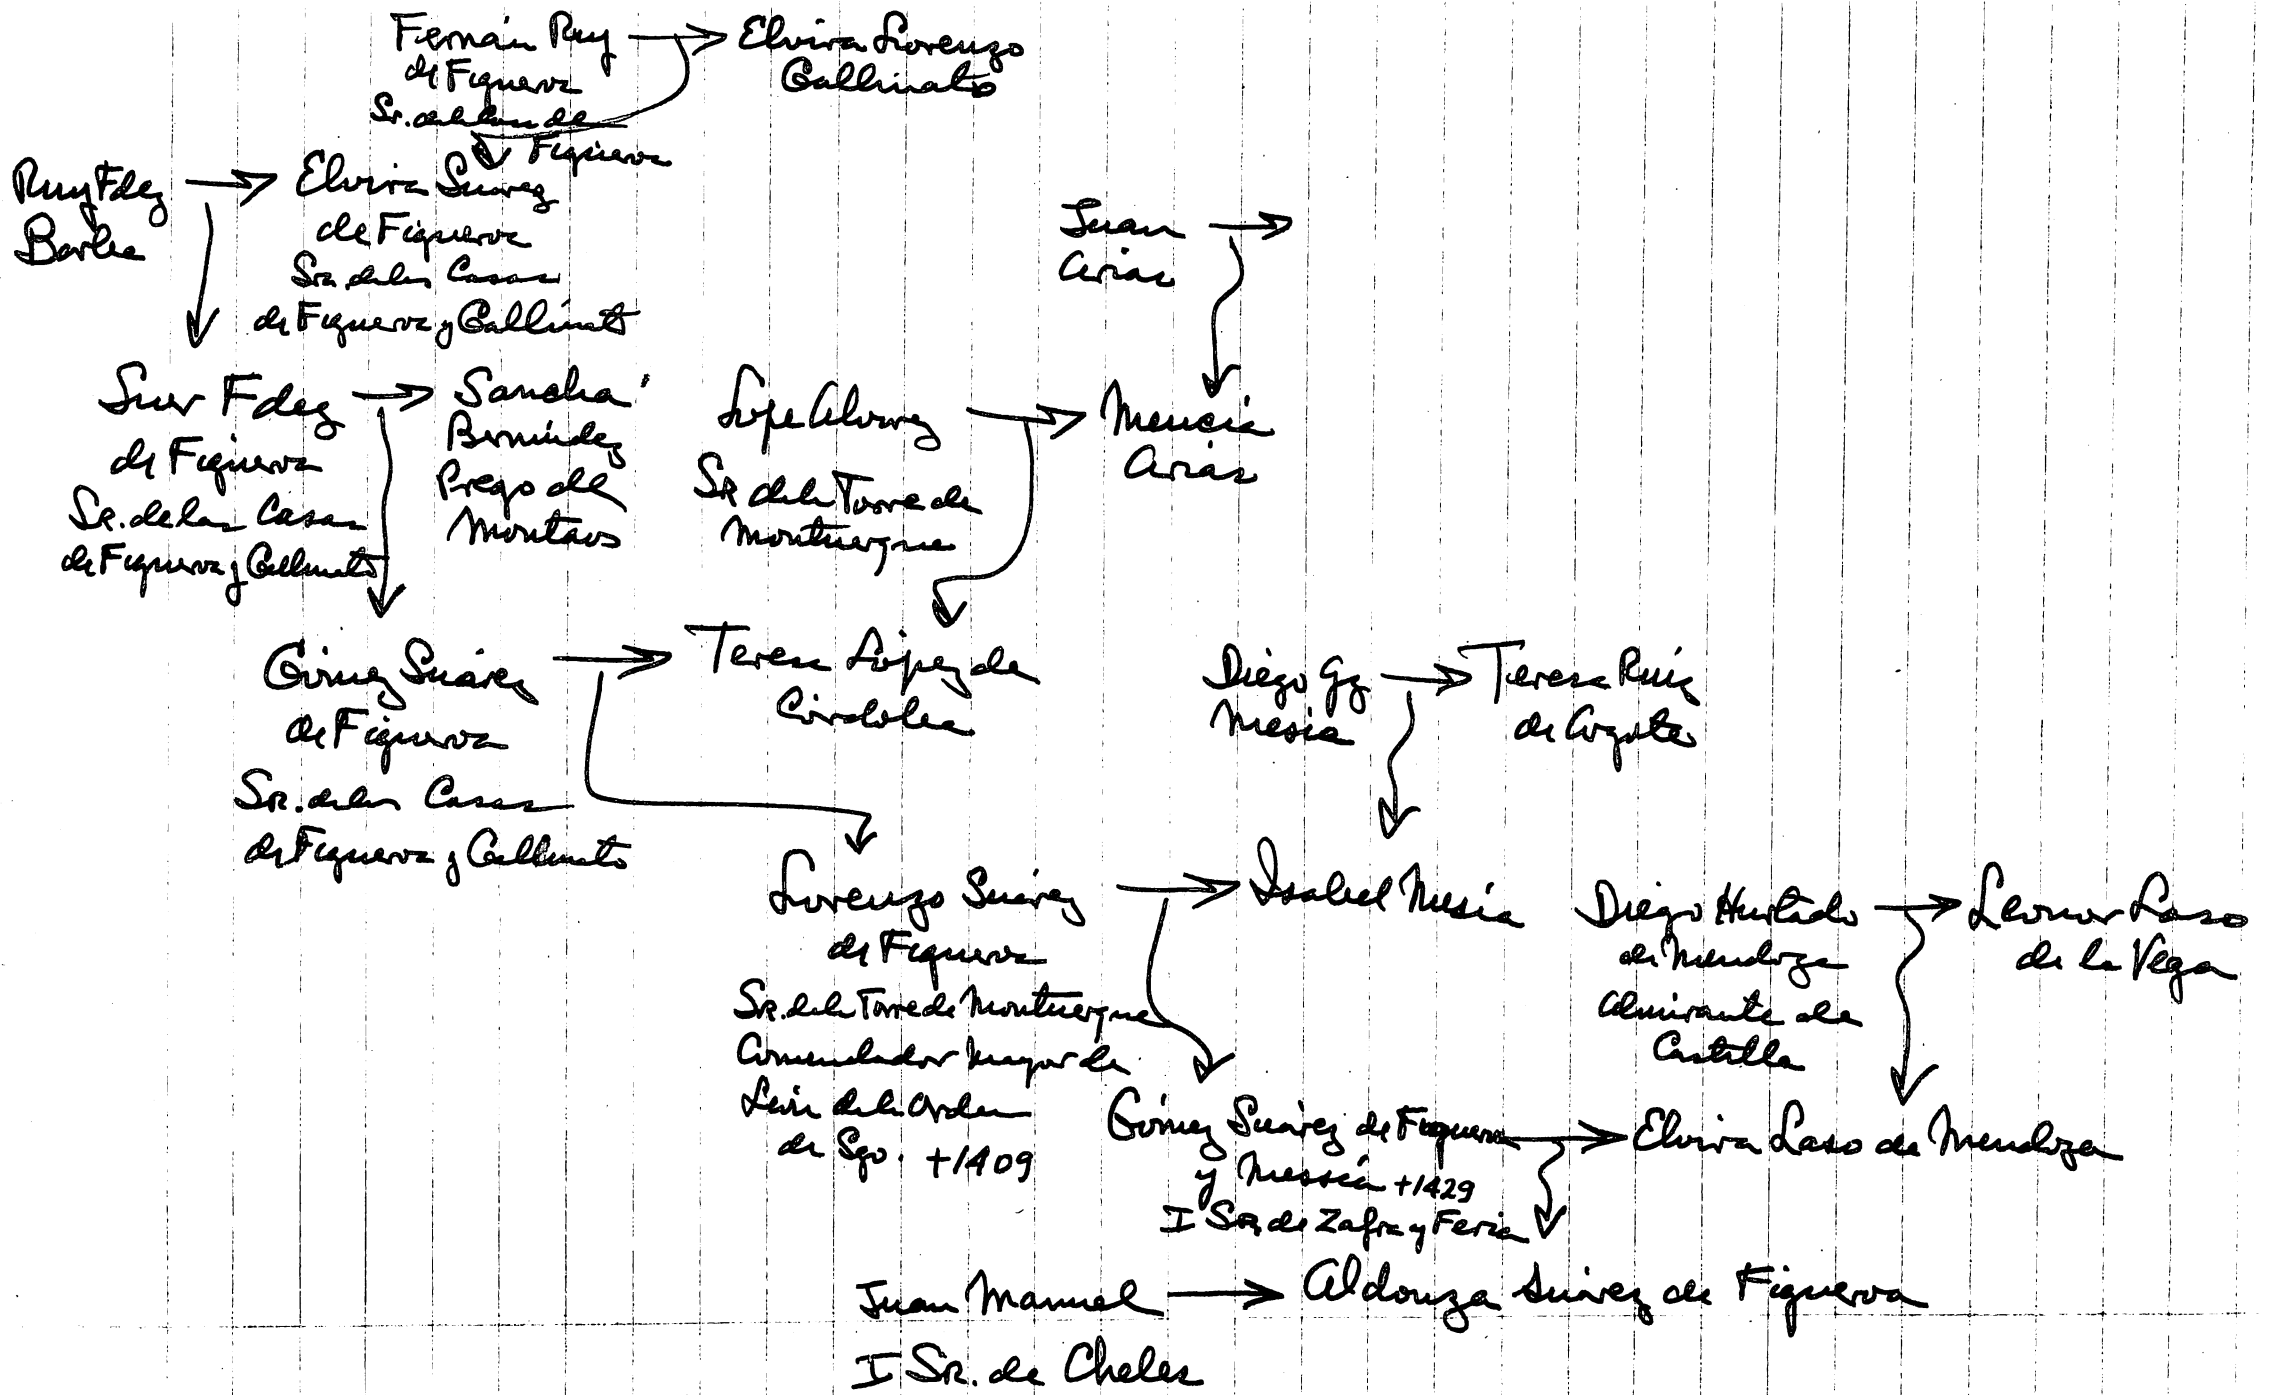 Fernán Ruy
de Figueroa
Sr. de la Casa de
Figueroa
Elvira Lorenzo
Gallinato
Ruy Fdez
Barba
Elvira Suárez
de Figueroa
Sra. de las Casas
de Figueroa y Gallinato
Juan
Arias
Suer Fdez
de Figueroa
Sr. de las Casas
de Figueroa y Gallinato
Sancha
Bermúdez
Prego de
Montaos
Lope Alvarez
Sr. de la Torre de
Monturque
Mencía
Arias
Gómez Suárez
de Figueroa
Sr. de las Casas
de Figueroa y Gallinato
Teresa López de
Córdoba
Diego Gz
Mesía
Teresa Ruiz
de
Lorenzo Suárez
de Figueroa
Sr. de la Torre de Monturque
Comendador Mayor de
León de la Orden
de Sgo. +1409
Isabel Mesía
Diego Hurtado
de Mendoza
Almirante de
Castilla
Leonor Laso
de la Vega
Gómez Suárez de Figueroa
y Messía +1429
I Sr. de Zafra y Feria
Elvira Laso de Mendoza
Juan Manuel
I Sr. de Cheles
Aldonza Suárez de Figueroa